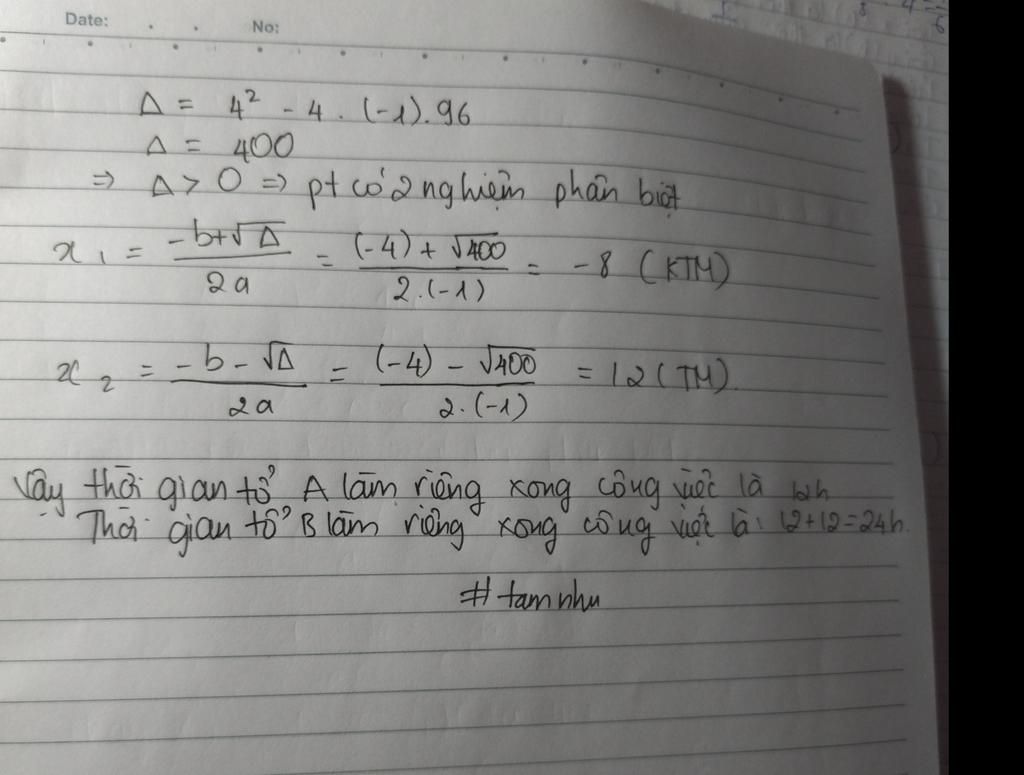 Date: No:
Δ = 4² - 4 . (-1).96
Δ = 400
⇒ Δ > 0 ⇒ pt có 2 nghiệm phân biệt
x₁ = (-b+√Δ)/(2a) = ((-4) + √400)/(2.(-1)) = -8 (KTM)
x₂ = (-b - √Δ)/(2a) = ((-4) - √400)/(2.(-1)) = 12 (TM).
Vậy thời gian tổ A làm riêng xong công việc là 12h
Thời gian tổ B làm riêng xong công việc là: 12+12=24h.
# tamnhu